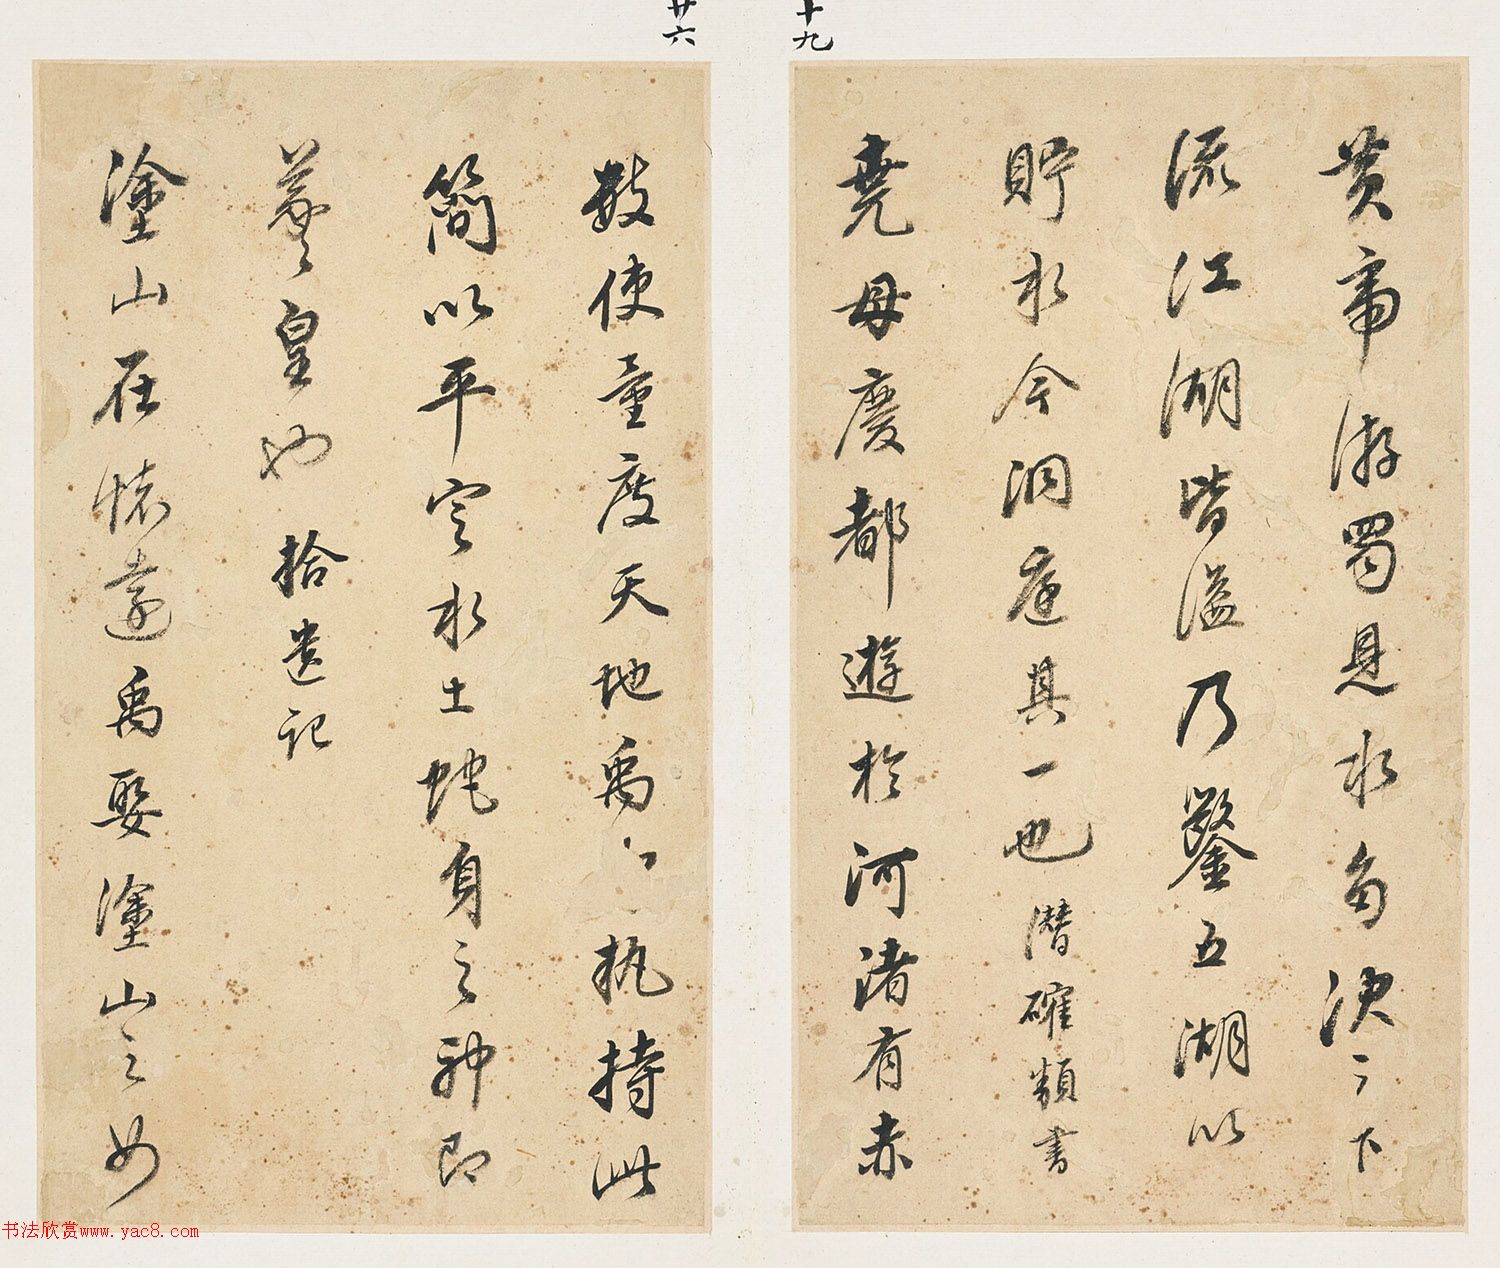 十九
黄帝游蜀見水決之下
流江湖皆溢乃鑿五湖以
貯水今洞庭其一也潛確類書
堯母慶都遊於河渚有赤
廿六
數使量度天地禹〻執持此
簡以平定水土蛇身之神即
羲皇也 拾遺記
塗山在懷遠禹娶塗山之女
书法欣赏www.yac8.com